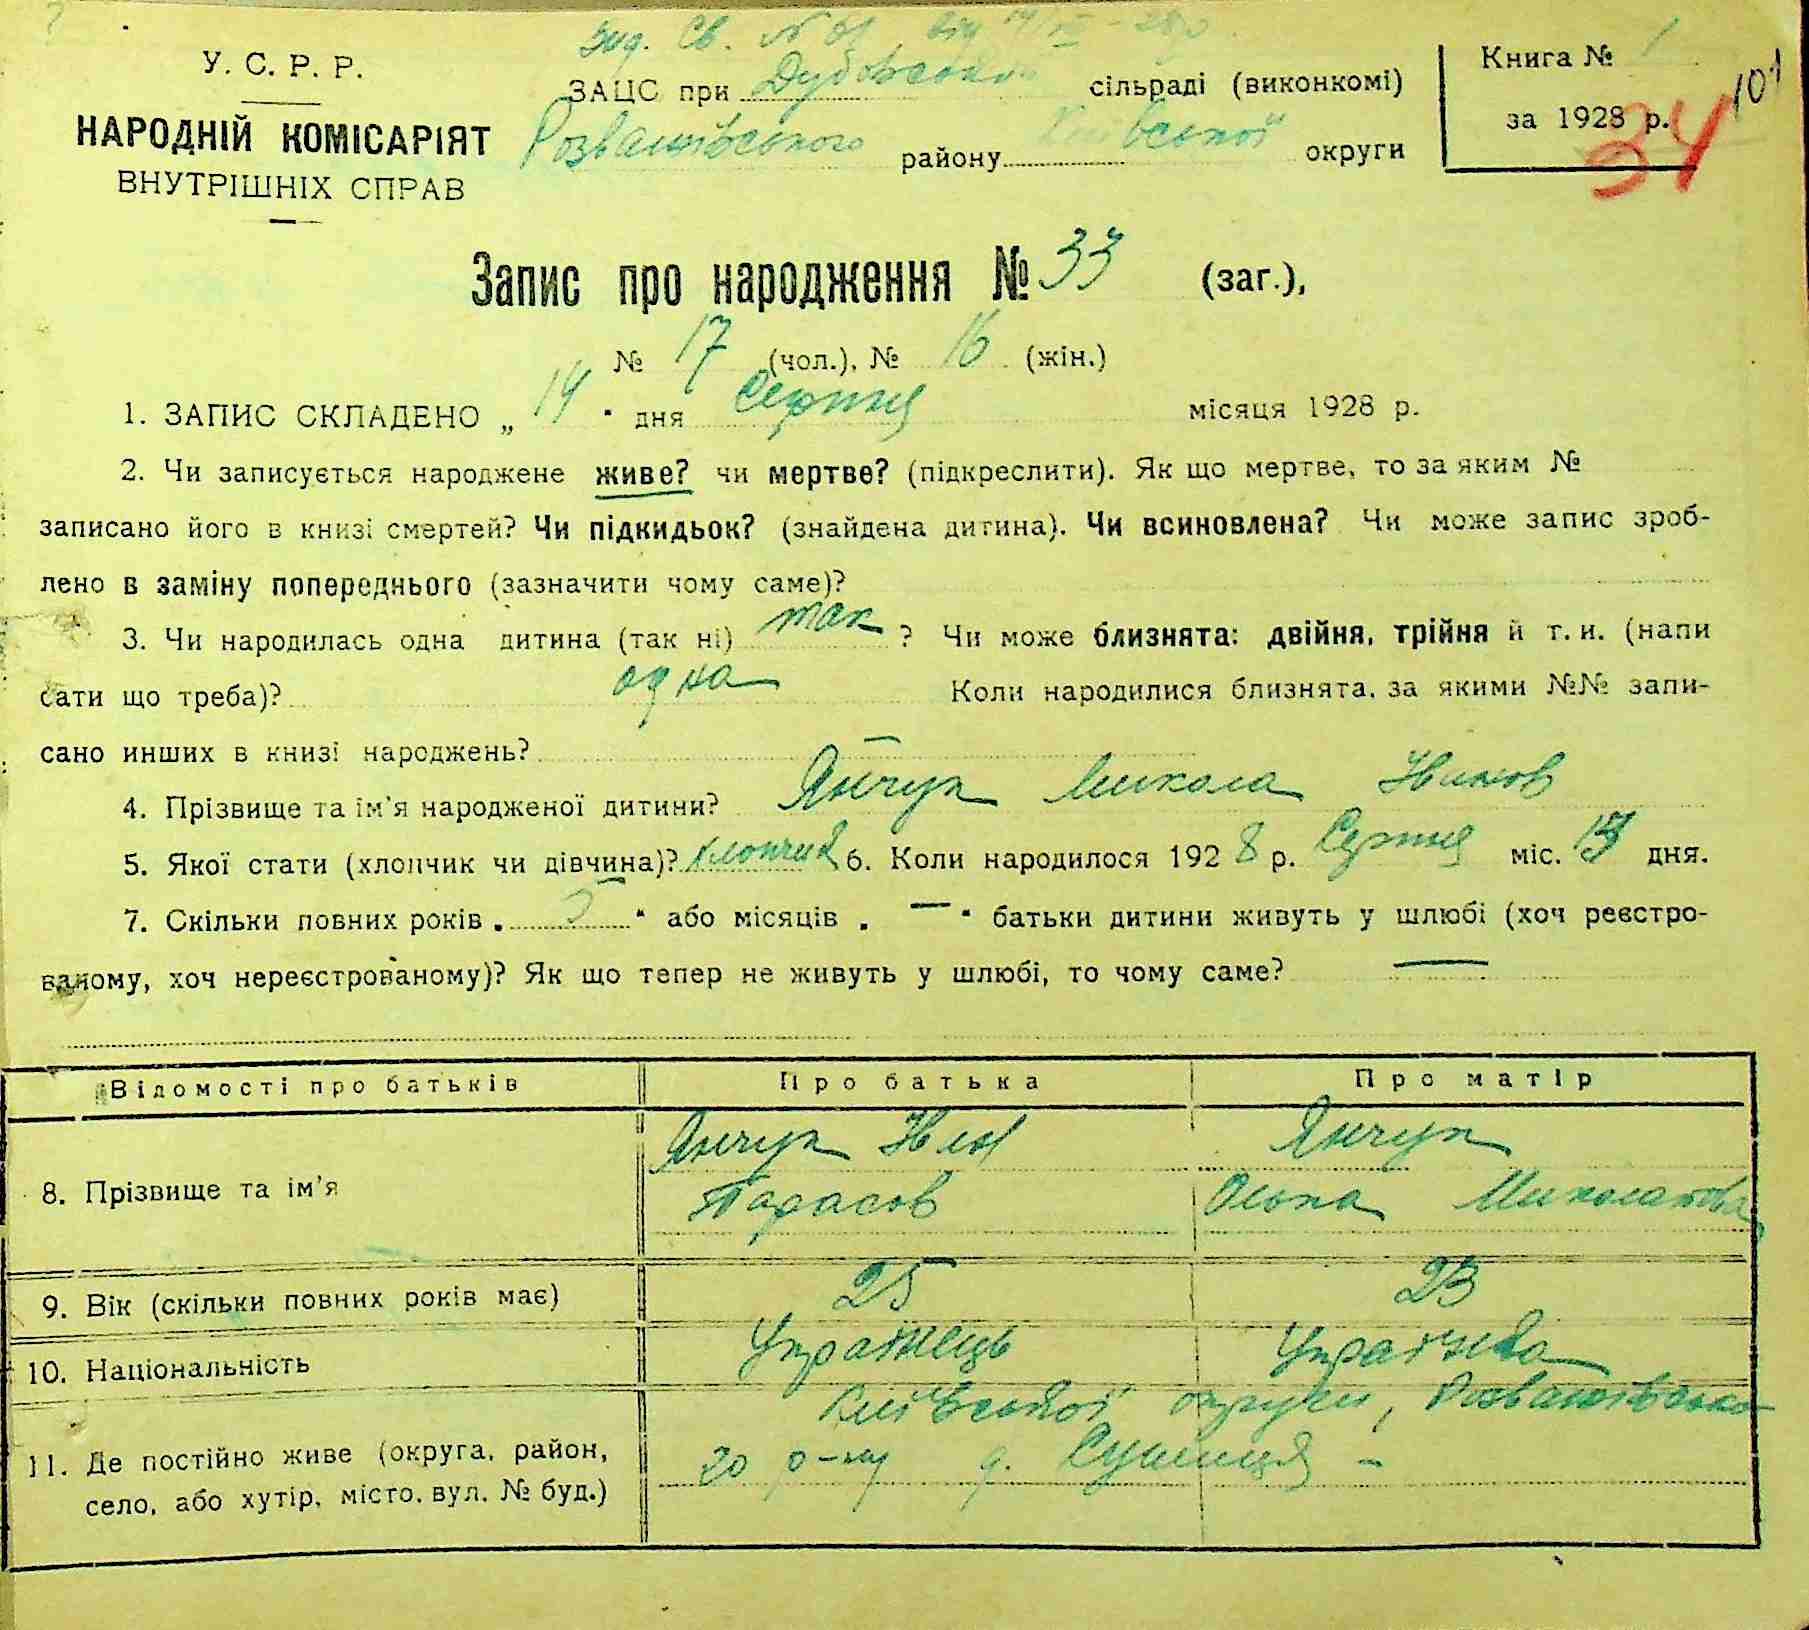 Вид. Св. № від
У. С. Р. Р.
НАРОДНІЙ КОМІСАРІЯТ
ВНУТРІШНІХ СПРАВ
ЗАЦС при Дубовській сільраді (виконкомі)
Розважівського району Київської округи
Книга № 1
за 1928 р.
101
34
Запис про народження № 33 (заг.),
№ 17 (чол.), № 16 (жін.)
1. ЗАПИС СКЛАДЕНО „ 14 " дня Серпня місяця 1928 р.
2. Чи записується народжене живе? чи мертве? (підкреслити). Як що мертве, то за яким №
записано його в книзі смертей? Чи підкидьок? (знайдена дитина). Чи всиновлена? Чи може запис зроб-
лено в заміну попереднього (зазначити чому саме)?
3. Чи народилась одна дитина (так ні) так ? Чи може близнята: двійня, трійня й т. и. (напи
сати що треба)? одна Коли народилися близнята, за якими №№ запи-
сано инших в книзі народжень? —
4. Прізвище та ім'я народженої дитини? Янчук Микола
5. Якої стати (хлопчик чи дівчина)? хлопчик 6. Коли народилося 1928 р. Серпня міс. 13 дня.
7. Скільки повних років „ 5 " або місяців „ — " батьки дитини живуть у шлюбі (хоч реєстро-
ваному, хоч нереєстрованому)? Як що тепер не живуть у шлюбі, то чому саме? —
Відомості про батьків Про батька Про матір
8. Прізвище та ім'я Янчук Янчук
Тарасов Ольга Миколаївна
9. Вік (скільки повних років має) 25 23
10. Національність Українець Українка
11. Де постійно живе (округа, район,
село, або хутір, місто, вул. № буд.)
Київської округи, Розважівсько-
го р-ну